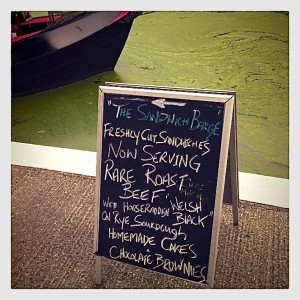 "THE SANDWICH BARGE"
FRESHLY CUT SANDWICHES
NOW SERVING
RARE ROAST
BEEF, "WELSH
WITH HORSERADISH BLACK"
ON RYE SOURDOUGH
HOMEMADE CAKES
CHOCOLATE BROWNIES